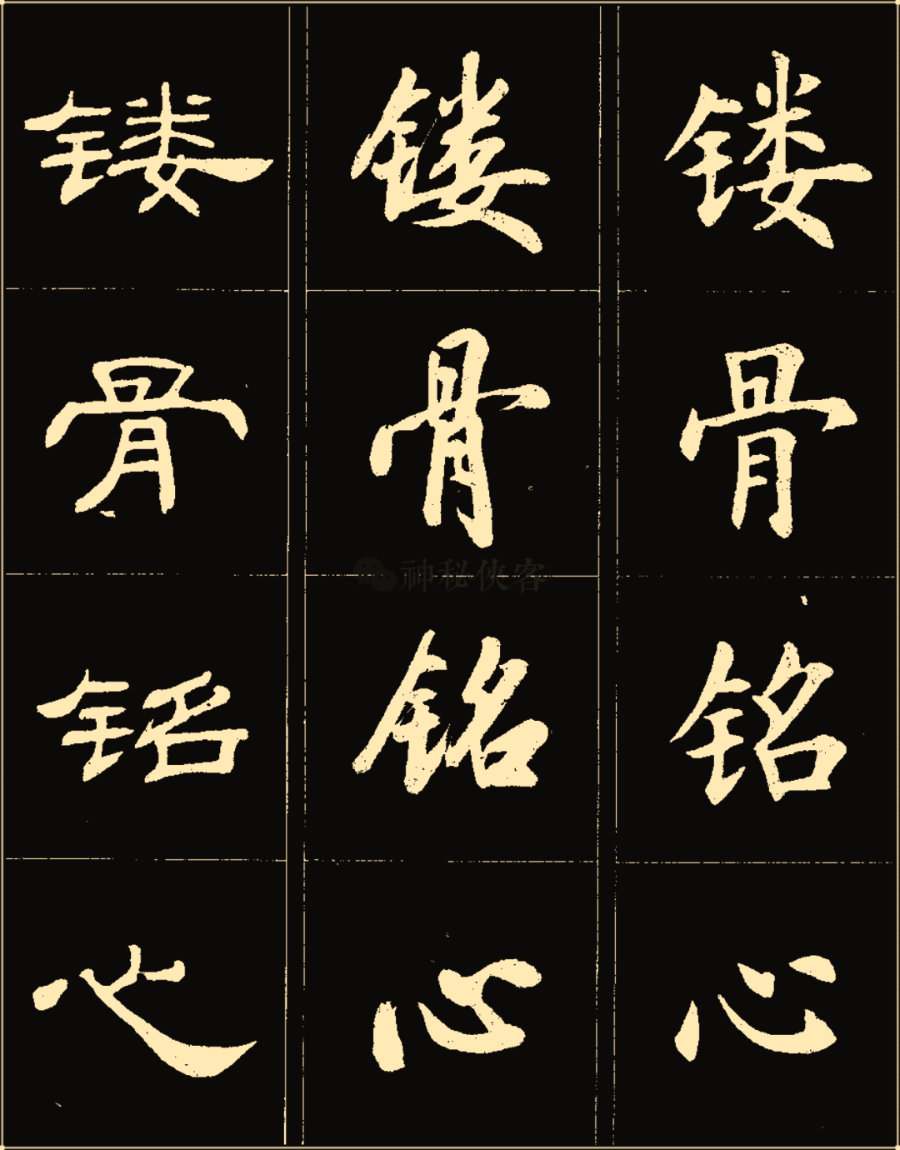 镂骨铭心
镂骨铭心
镂骨铭心
神秘侠客